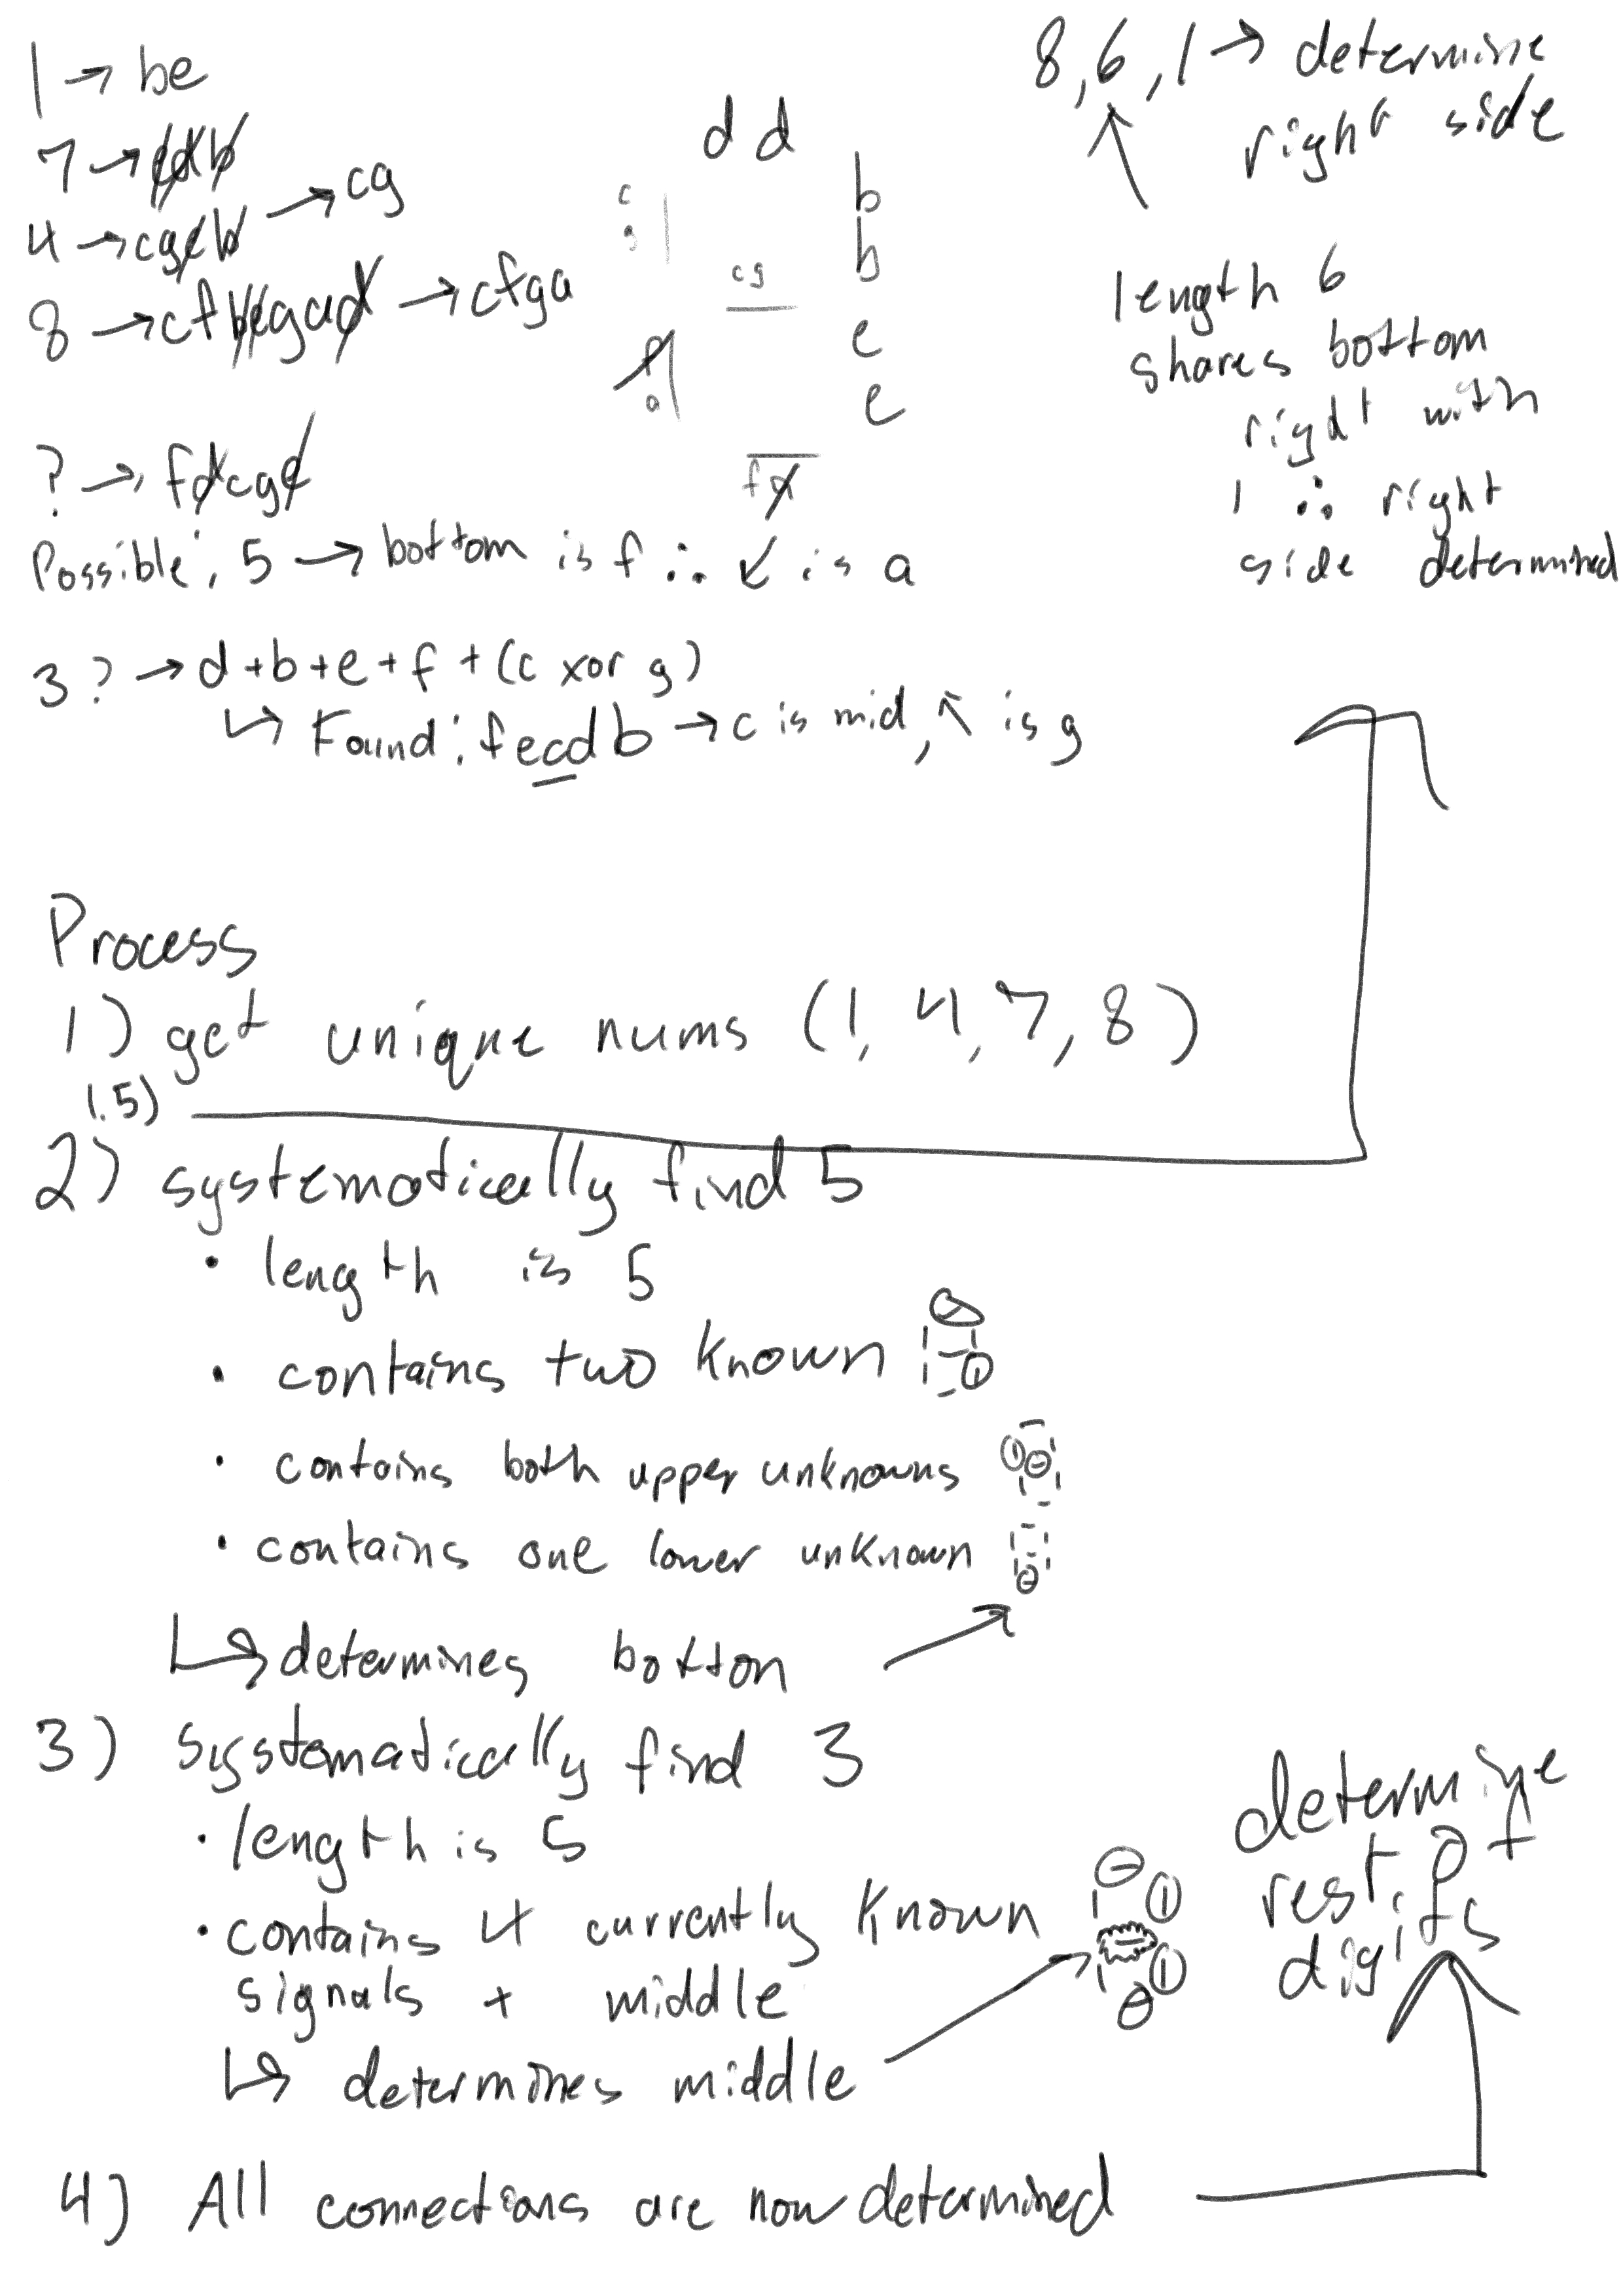 1 → be
7 → edb
4 → cgeb → cg
8 → cfbegad → cfga
? → fdcge
Possible: 5 → bottom is f ∴ ↙ is a
3 ? → d+b+e+f+(c xor g)
↳ Found: fecdb → c is mid, ↖ is g
d d
c
g
b
b
cg
e
e
a
f
8, 6, 1 → determine
right side
length 6
shares bottom
right with
1 ∴ right
side determined
Process
1) get unique nums (1, 4, 7, 8)
1.5)
2) systematically find 5
• length is 5
• contains two known
• contains both upper unknowns
• contains one lower unknown
↳ determines bottom
3) systematically find 3
• length is 5
• contains 4 currently known
signals + middle
↳ determines middle
4) All connections are now determined
determine
rest of
digits